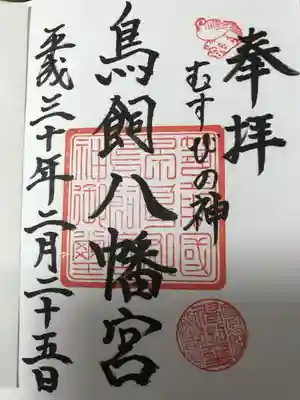 奉拝
むすびの神
鳥飼八幡宮
平成三十年二月二十五日